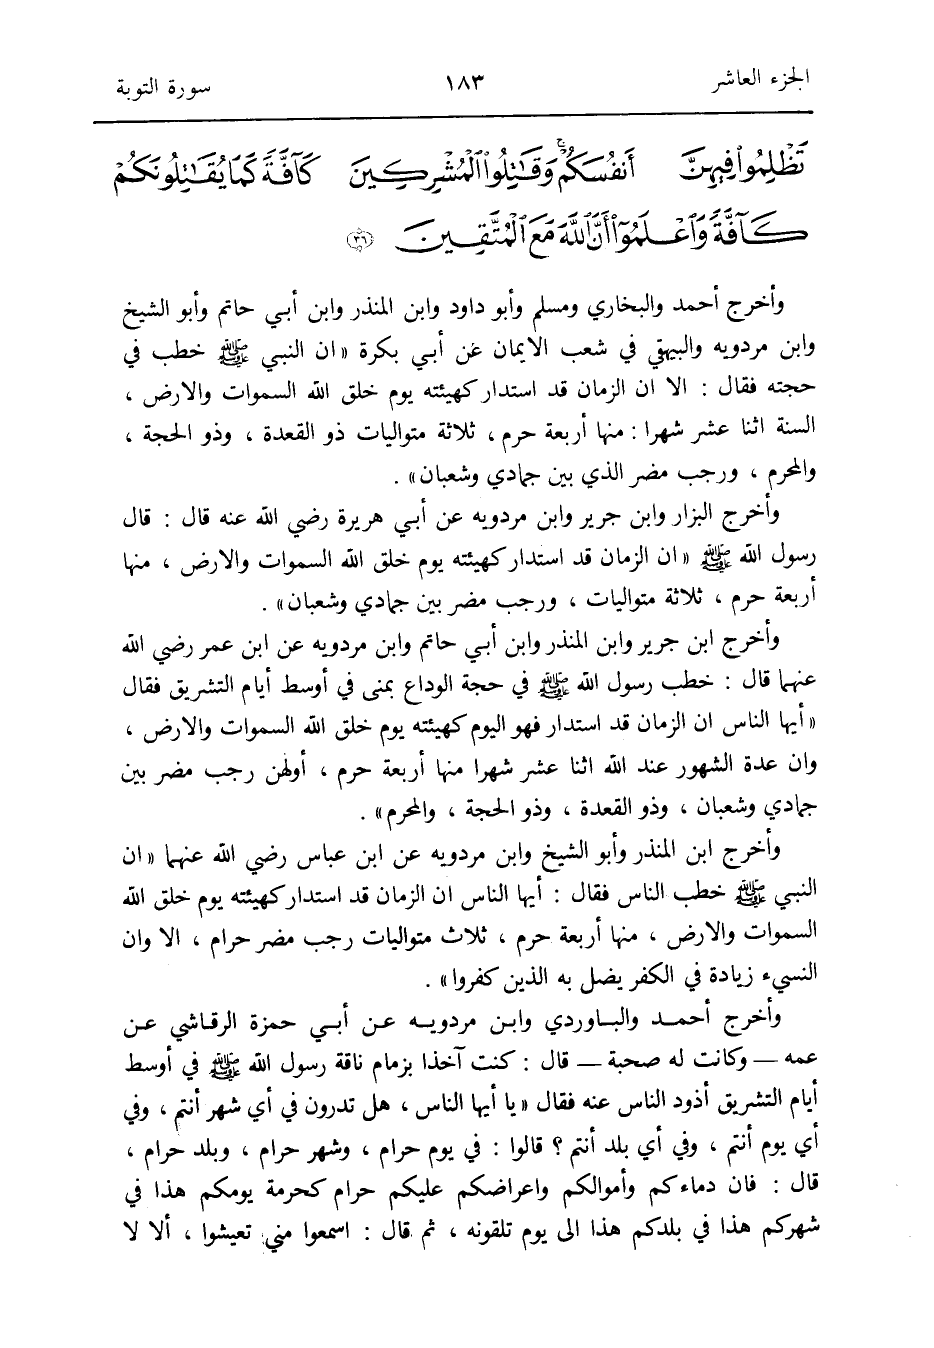 الجزء العاشر ١٨٣ سورة التوبة
تَظْلِمُوا۟ فِيهِنَّ أَنفُسَكُمْ ۚ وَقَـٰتِلُوا۟ ٱلْمُشْرِكِينَ كَآفَّةً كَمَا يُقَـٰتِلُونَكُمْ
كَآفَّةً وَٱعْلَمُوٓا۟ أَنَّ ٱللَّهَ مَعَ ٱلْمُتَّقِينَ ٣٦
وأخرج أحمد والبخاري ومسلم وأبو داود وابن المنذر وابن أبي حاتم وأبو الشيخ
وابن مردويه والبيهقي في شعب الايمان عن أبي بكرة « ان النبي ﷺ خطب في
حجته فقال : الا ان الزمان قد استدار كهيئته يوم خلق الله السموات والارض ،
السنة اثنا عشر شهرا : منها أربعة حرم ، ثلاثة متواليات ذو القعدة ، وذو الحجة ،
والمحرم ، ورجب مضر الذي بين جمادي وشعبان» .
وأخرج البزار وابن جرير وابن مردويه عن أبي هريرة رضي الله عنه قال : قال
رسول الله ﷺ « ان الزمان قد استدار كهيئته يوم خلق الله السموات والارض ، منها
أربعة حرم ، ثلاثة متواليات ، ورجب مضر بين جمادي وشعبان» .
وأخرج ابن جرير وابن المنذر وابن أبي حاتم وابن مردويه عن ابن عمر رضي الله
عنهما قال : خطب رسول الله ﷺ في حجة الوداع بمنى في أوسط أيام التشريق فقال
« أيها الناس ان الزمان قد استدار فهو اليوم كهيئته يوم خلق الله السموات والارض ،
وان عدة الشهور عند الله اثنا عشر شهرا منها أربعة حرم ، أولهن رجب مضر بين
جمادي وشعبان ، وذو القعدة ، وذو الحجة ، والمحرم» .
وأخرج ابن المنذر وأبو الشيخ وابن مردويه عن ابن عباس رضي الله عنهما « ان
النبي ﷺ خطب الناس فقال : أيها الناس ان الزمان قد استدار كهيئته يوم خلق الله
السموات والارض ، منها أربعة حرم ، ثلاث متواليات رجب مضر حرام ، الا وان
النسيء زيادة في الكفر يضل به الذين كفروا» .
وأخرج أحمد والباوردي وابن مردويه عن أبي حمزة الرقاشي عن
عمه — وكانت له صحبة — قال : كنت آخذا بزمام ناقة رسول الله ﷺ في أوسط
أيام التشريق أذود الناس عنه فقال « يا أيها الناس ، هل تدرون في أي شهر أنتم ، وفي
أي يوم أنتم ، وفي أي بلد أنتم ؟ قالوا : في يوم حرام ، وشهر حرام ، وبلد حرام ،
قال : فان دماءكم وأموالكم واعراضكم عليكم حرام كحرمة يومكم هذا في
شهركم هذا في بلدكم هذا الى يوم تلقونه ، ثم قال : اسمعوا مني تعيشوا ، ألا لا